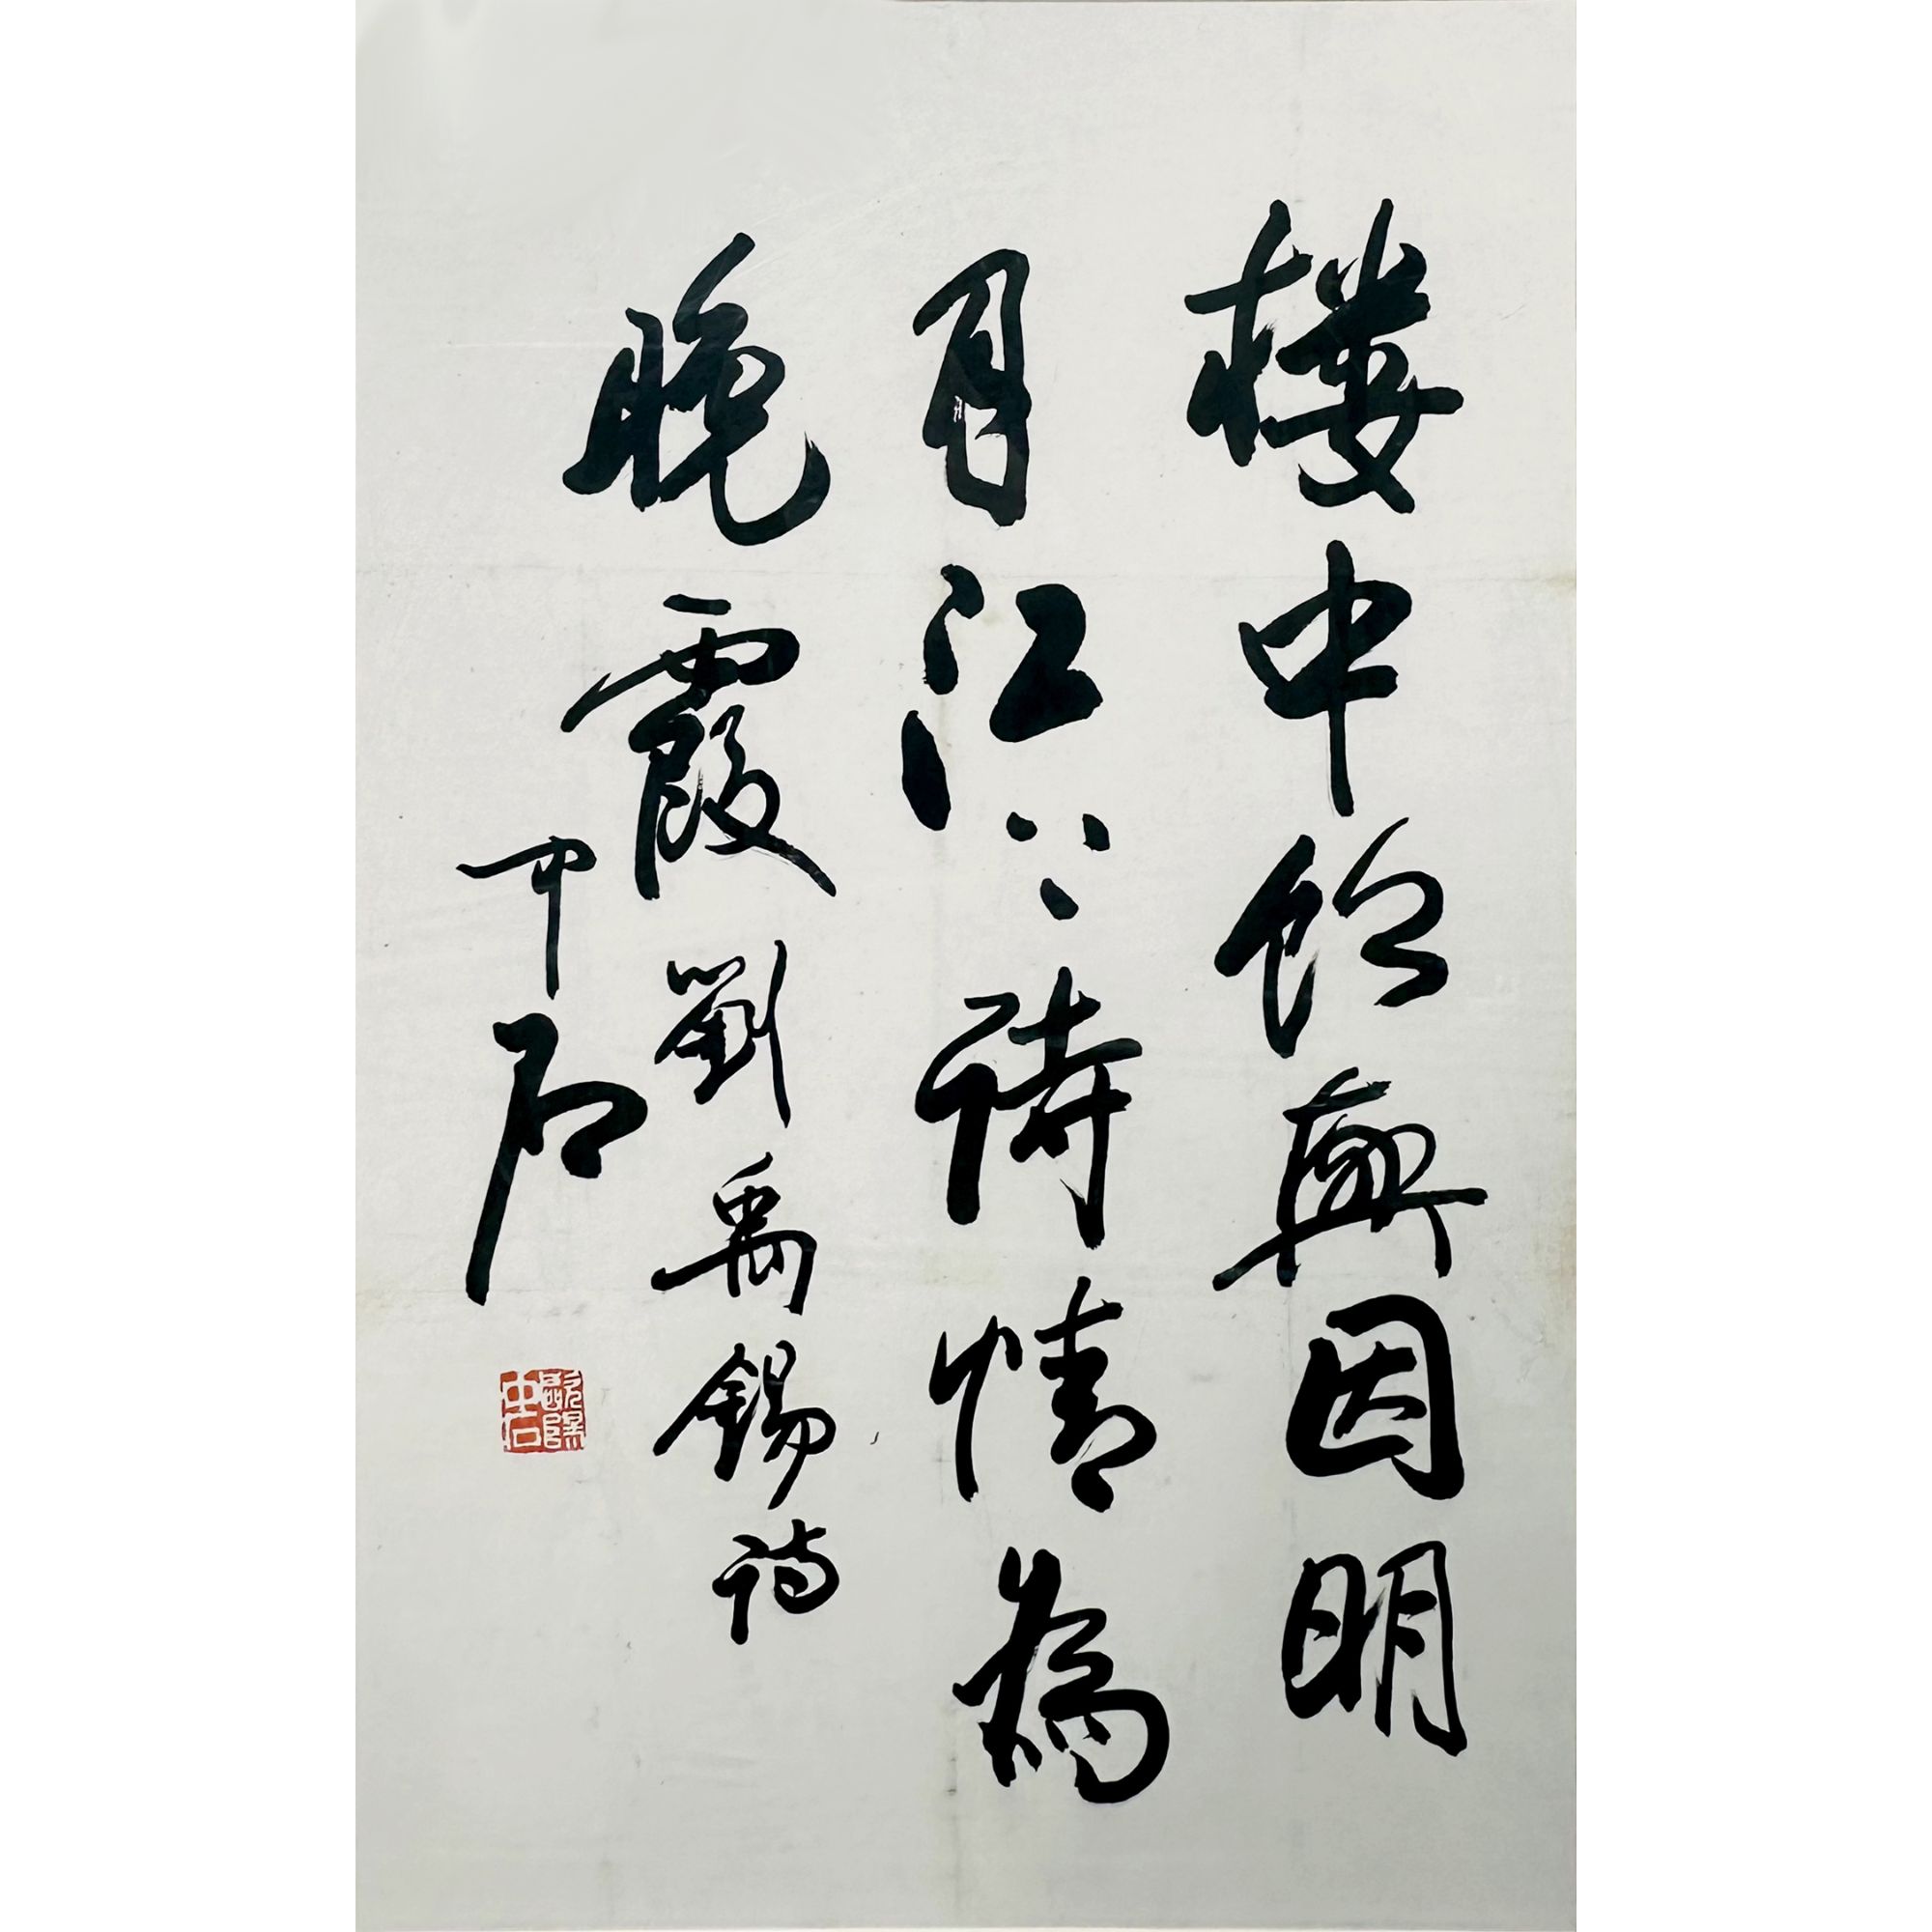 楼中饮興因明
月江上詩情為
晚霞劉禹錫诗
中石
歐陽中石